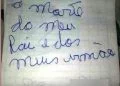 a morte
do meu
Pai e dos
meus irmãos